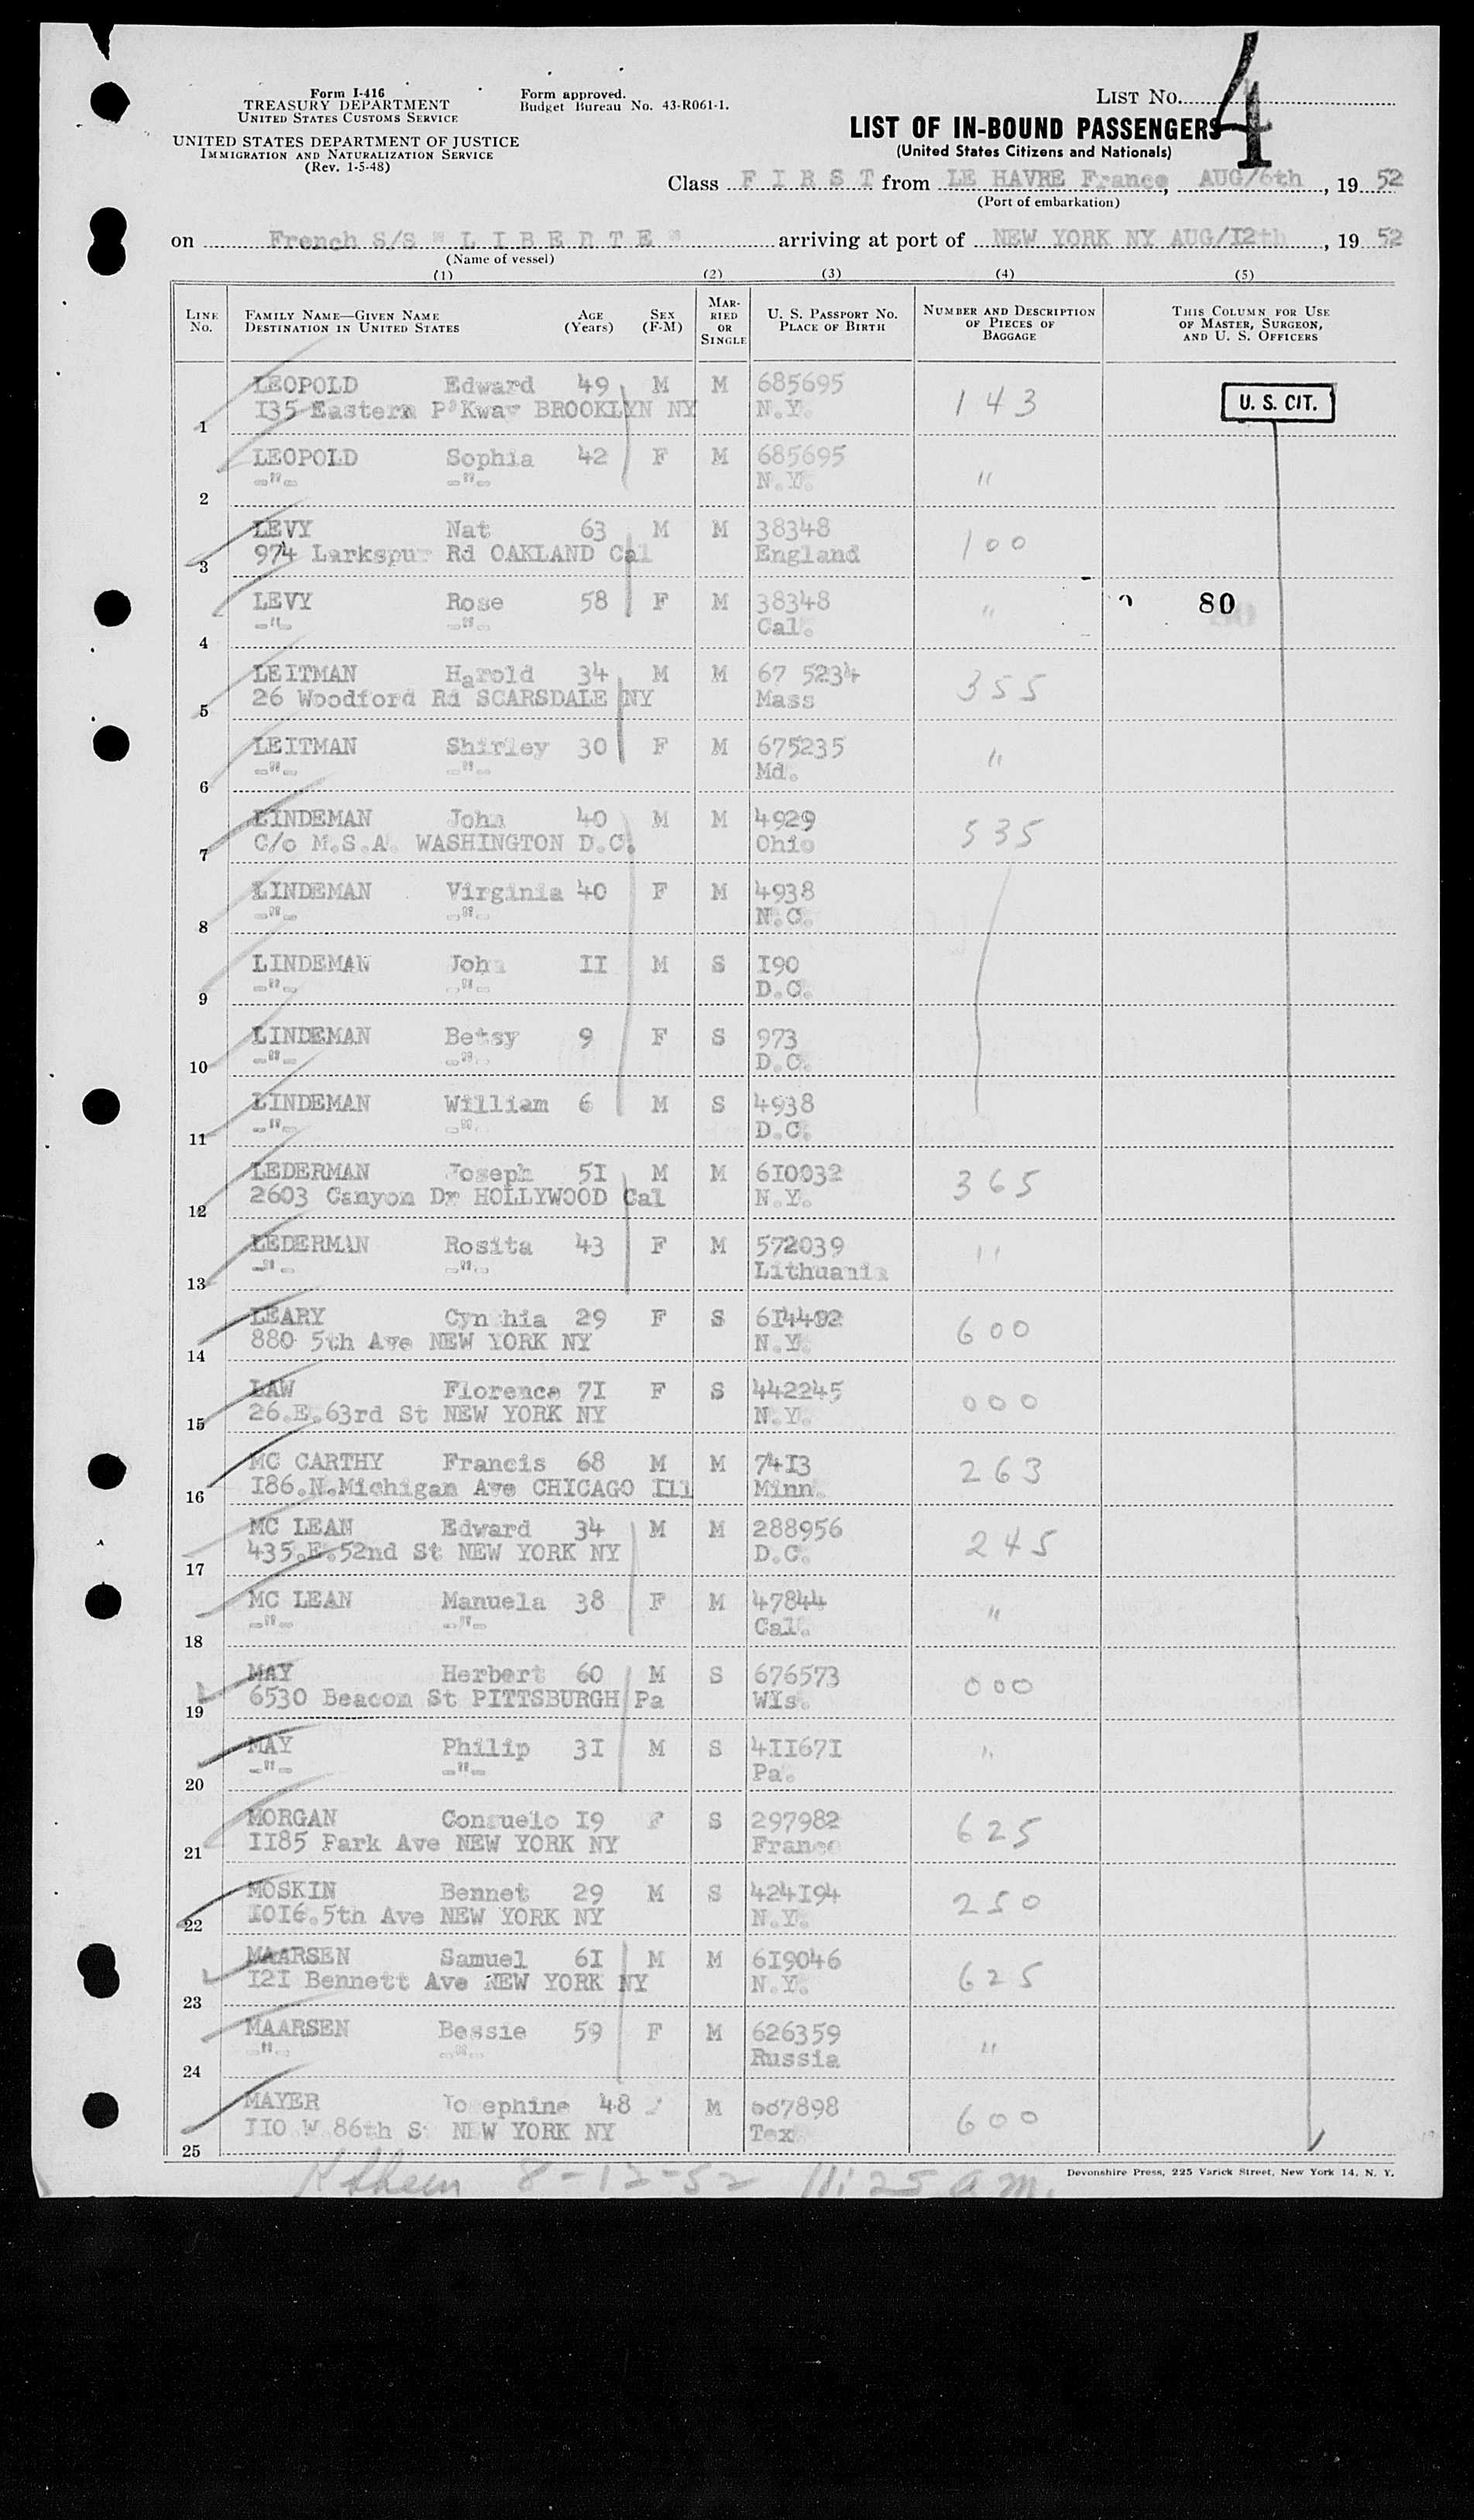 4
Form I-416
TREASURY DEPARTMENT
UNITED STATES CUSTOMS SERVICE
UNITED STATES DEPARTMENT OF JUSTICE
IMMIGRATION AND NATURALIZATION SERVICE
(Rev. 1-5-48)
Form approved.
Budget Bureau No. 43-R061-1.
LIST No.
LIST OF IN-BOUND PASSENGERS
(United States Citizens and Nationals)
Class F I R S T from LE HAVRE France, AUG/6th, 19 52
(Port of embarkation)
on French S/S " L I B E R T E " arriving at port of NEW YORK NY AUG/I2th, 19 52
(Name of vessel)
(1) (2) (3) (4) (5)
LINE No. FAMILY NAME—GIVEN NAME DESTINATION IN UNITED STATES AGE (Years) SEX (F-M) MARRIED OR SINGLE U. S. PASSPORT No. PLACE OF BIRTH NUMBER AND DESCRIPTION OF PIECES OF BAGGAGE THIS COLUMN FOR USE OF MASTER, SURGEON, AND U. S. OFFICERS
LEOPOLD Edward 49 M M 685695 143 U. S. CIT.
1 I35 Eastern P'Kway BROOKLYN NY N.Y.
LEOPOLD Sophia 42 F M 685695 "
2 -"- -"- N.Y.
LEVY Nat 63 M M 38348 100
3 974 Larkspur Rd OAKLAND Cal England
LEVY Rose 58 F M 38348 " 80
4 -"- -"- Cal.
LEITMAN Harold 34 M M 67 5234 355
5 26 Woodford Rd SCARSDALE NY Mass
LEITMAN Shirley 30 F M 675235 "
6 -"- -"- Md.
LINDEMAN John 40 M M 4929 535
7 C/o M.S.A. WASHINGTON D.C. Ohio
LINDEMAN Virginia 40 F M 4938
8 -"- -"- N.C.
LINDEMAN John II M S I90
9 -"- -"- D.C.
LINDEMAN Betsy 9 F S 973
10 -"- -"- D.C.
LINDEMAN William 6 M S 4938
11 -"- -"- D.C.
LEDERMAN Joseph 5I M M 6I0032 365
12 2603 Canyon Dr HOLLYWOOD Cal N.Y.
LEDERMAN Rosita 43 F M 572039 "
13 -"- -"- Lithuania
LEARY Cynthia 29 F S 600
14 880 5th Ave NEW YORK NY N.Y.
LAW Florence 7I F S 442245 000
15 26.E.63rd St NEW YORK NY N.Y.
MC CARTHY Francis 68 M M 74I3 263
16 I86.N.Michigan Ave CHICAGO Ill Minn.
MC LEAN Edward 34 M M 288956 245
17 435.E.52nd St NEW YORK NY D.C.
MC LEAN Manuela 38 F M 47844 "
18 -"- -"- Cal.
MAY Herbert 60 M S 676573 000
19 6530 Beacon St PITTSBURGH Pa WIs.
MAY Philip 3I M S 4II67I "
20 -"- -"- Pa.
MORGAN Consuelo I9 F S 297982 625
21 II85 Park Ave NEW YORK NY France
MOSKIN Bennet 29 M S 424I94 250
22 I0I6.5th Ave NEW YORK NY N.Y.
MAARSEN Samuel 6I M M 6I9046 625
23 I2I Bennett Ave NEW YORK NY N.Y.
MAARSEN Bessie 59 F M 626359 "
24 -"- -"- Russia
MAYER Josephine 48 M 667898 600
25 II0 W 86th St NEW YORK NY Tex
8-12-52 11:25 a.m.
Devonshire Press, 225 Varick Street, New York 14, N. Y.